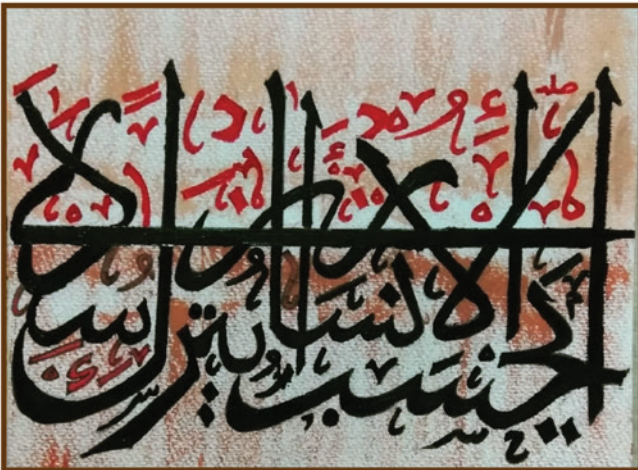 أَيَحْسَبُ الْإِنسَانُ أَن يُتْرَكَ سُدًى